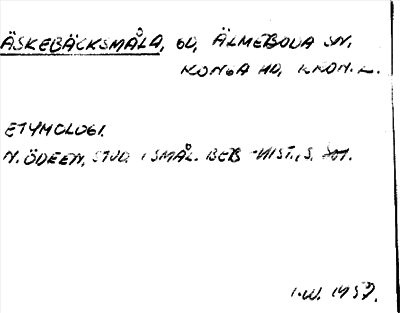 ÄSKEBÄCKSMÅLA, GD, ÄLMEBODA SN.
KONGA HD, KRON. L.
ETYMOLOGI.
N. ÖDEEN, STUD. I SMÅL. BEB-HIST., S.
I.W. 1957.